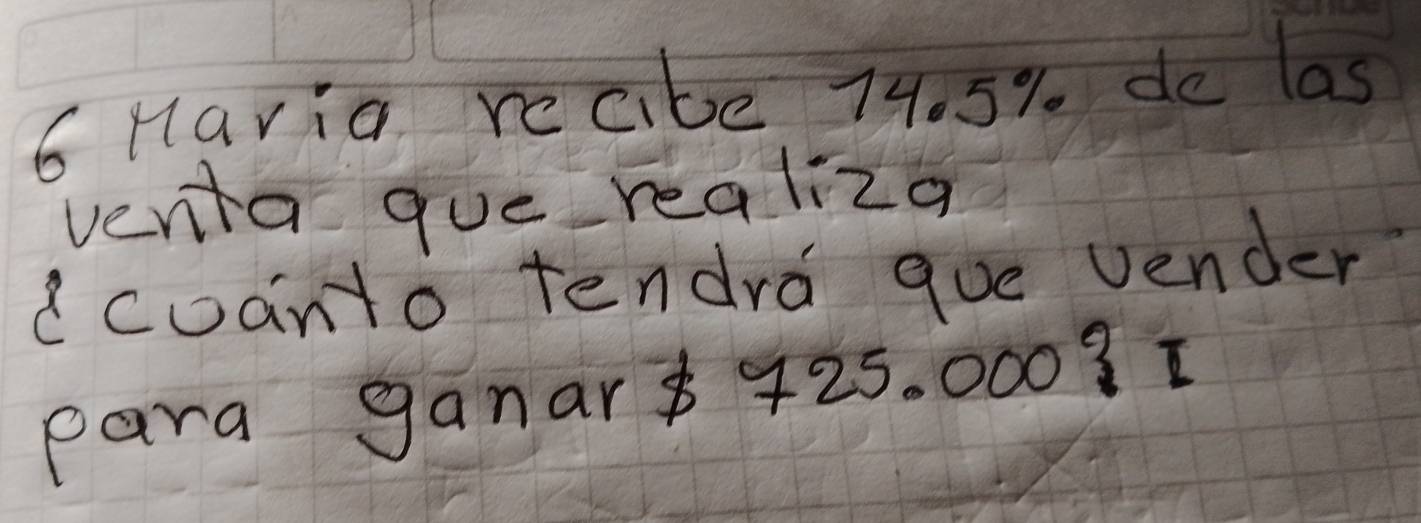 6 Maria recibe 14.5% de las
venta que realiza
¿cuánto tendrá que vender
para ganar $ 725.000? I